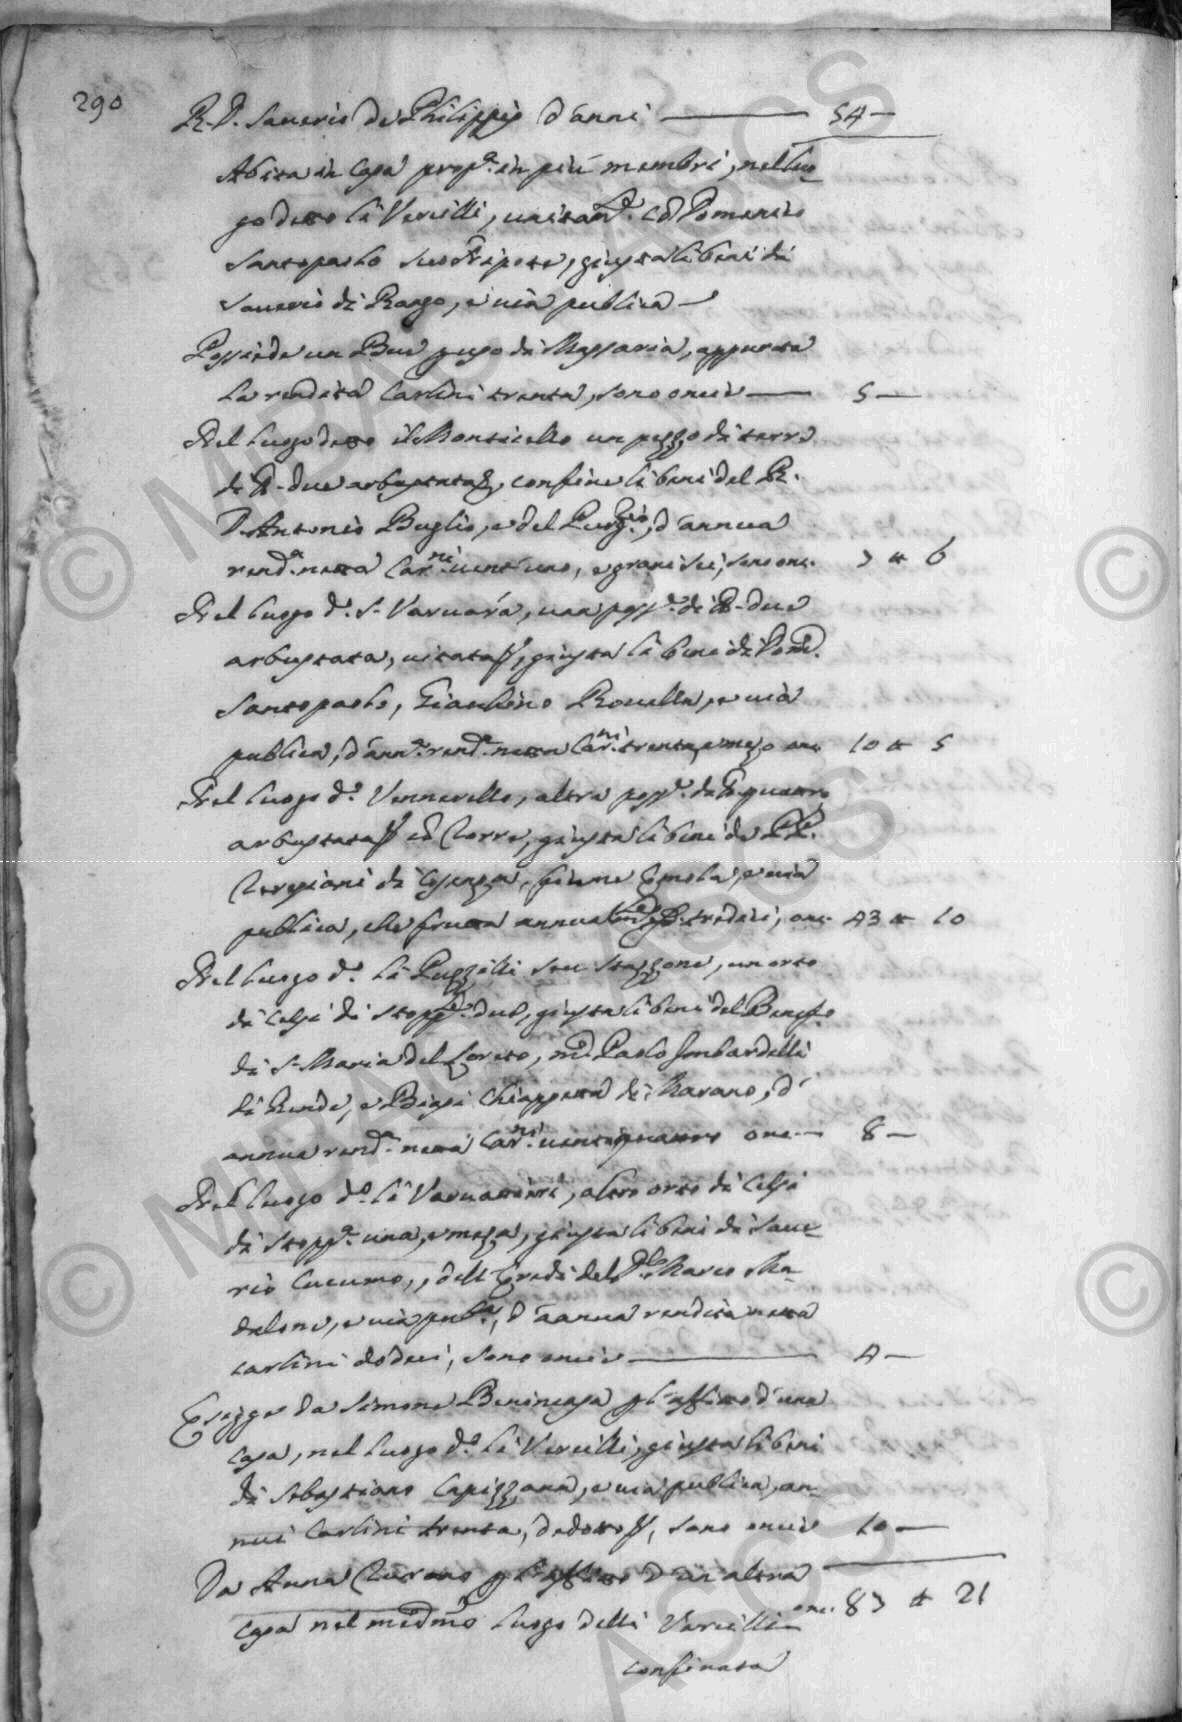 290
R. D. Saverio de Philippis d'anni 54
Abita in casa prop.a in più membri, nel luo-
go detto li Vercilli, unitam.e co Domenico
Santopaolo suo Nipote, giusta li beni di
Saverio di Rango, e via publica
Possiede un Bue p uso di Massaria, appurata
la rendita Carlini trenta, sono oncie 5
Nel luogo detto il Monticello un pezzo di terra
di due arbustata, confine li beni del R.
D. Antonio Buglio, e del d'annua
rend.a netta Car.ni vent'uno, e grani sei, sono onc. 7 6
Nel luogo d.o S. Varvara, una poss.e di due
arbustata, vitata, giusta li beni di Dom.co
Santopaolo, Rovella, e via
publica, d'ann.a rend.a netta Car.ni trenta, e mezo onc. 10 5
Nel luogo d.o Vennerello, altra poss.e di quattro
arbustata co Torre, giusta li beni de PP.
di Cosenza, fiume e via
publica, che frutta annua tredici, onc. 43 10
Nel luogo d.o li Puzzilli seu Stazzone, un orto
di Celsi di stopp.e due, giusta li beni del Benef.o
di S. Maria del Loreto, Paolo Lombardelli
di Rende, e Biasi Chiappetta di Marano, d'
annua rend.a netta Car.ni venti quattro onc. 8
Nel luogo d.o li altro orto di Celsi
di stopp.e una, e meza, giusta li beni di Save-
rio Cucumo, dell'Eredi del Marco Ma-
dalone, e via pub.a, d'annua rendita netta
carlini dodeci, sono oncie 4
Esigge da Simone Benincasa p l'affitto d'una
casa, nel luogo d.o li Vercilli, giusta li beni
di Sebastiano Capizzano, e via publica, an-
nui Carlini trenta, sono oncie 10
Da Anna Turano p l'affitto d'un altra
casa nel medmo luogo delli Vercilli onc. 87 21
confinata